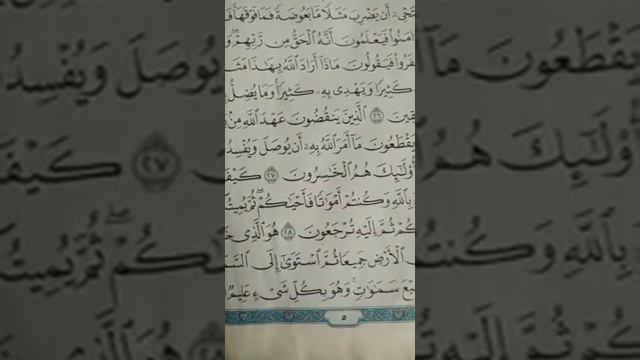 أَن يَضْرِبَ مَثَلًا مَّا بَعُوضَةً فَمَا فَوْقَهَا
ءَامَنُوا۟ فَيَعْلَمُونَ أَنَّهُ ٱلْحَقُّ مِن رَّبِّهِمْ
فَيَقُولُونَ مَاذَآ أَرَادَ ٱللَّهُ بِهَـٰذَا
كَثِيرًا وَيَهْدِى بِهِۦ كَثِيرًا وَمَا يُضِلُّ
٢٦ ٱلَّذِينَ يَنقُضُونَ عَهْدَ ٱللَّهِ مِنۢ
يَقْطَعُونَ مَآ أَمَرَ ٱللَّهُ بِهِۦٓ أَن يُوصَلَ
أُو۟لَـٰٓئِكَ هُمُ ٱلْخَـٰسِرُونَ ٢٧
بِٱللَّهِ وَكُنتُمْ أَمْوَٰتًا فَأَحْيَـٰكُمْ ثُمَّ
ثُمَّ إِلَيْهِ تُرْجَعُونَ ٢٨ هُوَ ٱلَّذِى
ٱلْأَرْضِ جَمِيعًا ثُمَّ ٱسْتَوَىٰٓ إِلَى
سَمَـٰوَٰتٍ وَهُوَ بِكُلِّ شَىْءٍ عَلِيمٌ
٥